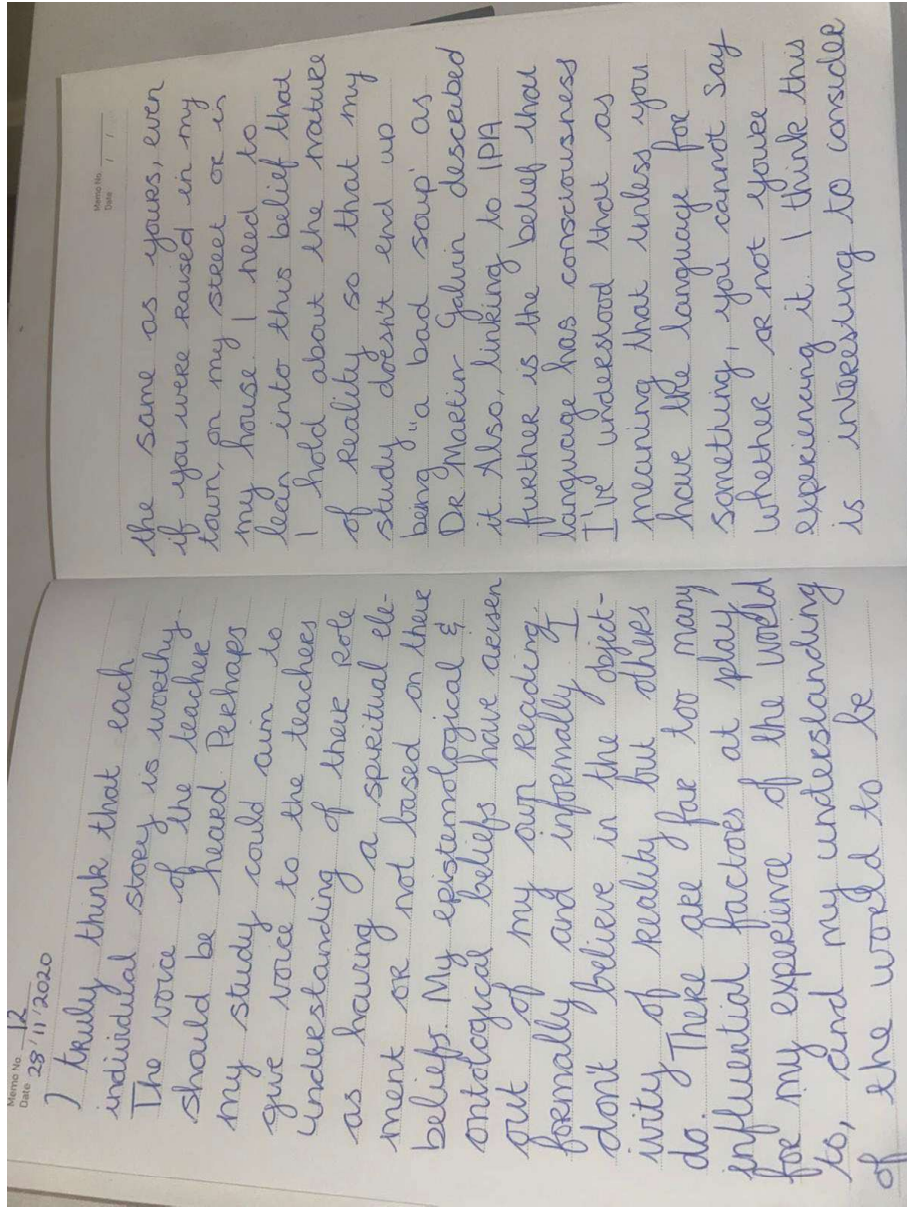 Memo No. 12
Date 28/11/2020
I truly think that each
individual story is worthy.
The voice of the teacher
should be heard. Perhaps
my study could aim to
give voice to the teachers
understanding of their role
as having a spiritual ele-
ment or not based on there
beliefs. My epistemological &
ontological beliefs have arisen
out of my own reading,
formally and informally. I
don't believe in the object-
ivity of reality but others
do. There are far too many
influential factors at play
for my experience of the world
to, and my understanding
of the world to be
Memo No.
Date / /
the same as yours, even
if you were raised in my
town, on my street or in
my house. I need to
lean into this belief that
I hold about the nature
of reality so that my
study doesn't end up
being "a bad soup' as
Dr Martin Galvin described
it. Also, linking to IPA
further is the belief that
language has consciousness
I've understood that as
meaning that unless you
have the language for
something, you cannot say
whether or not you're
experiencing it. I think this
is interesting to consider